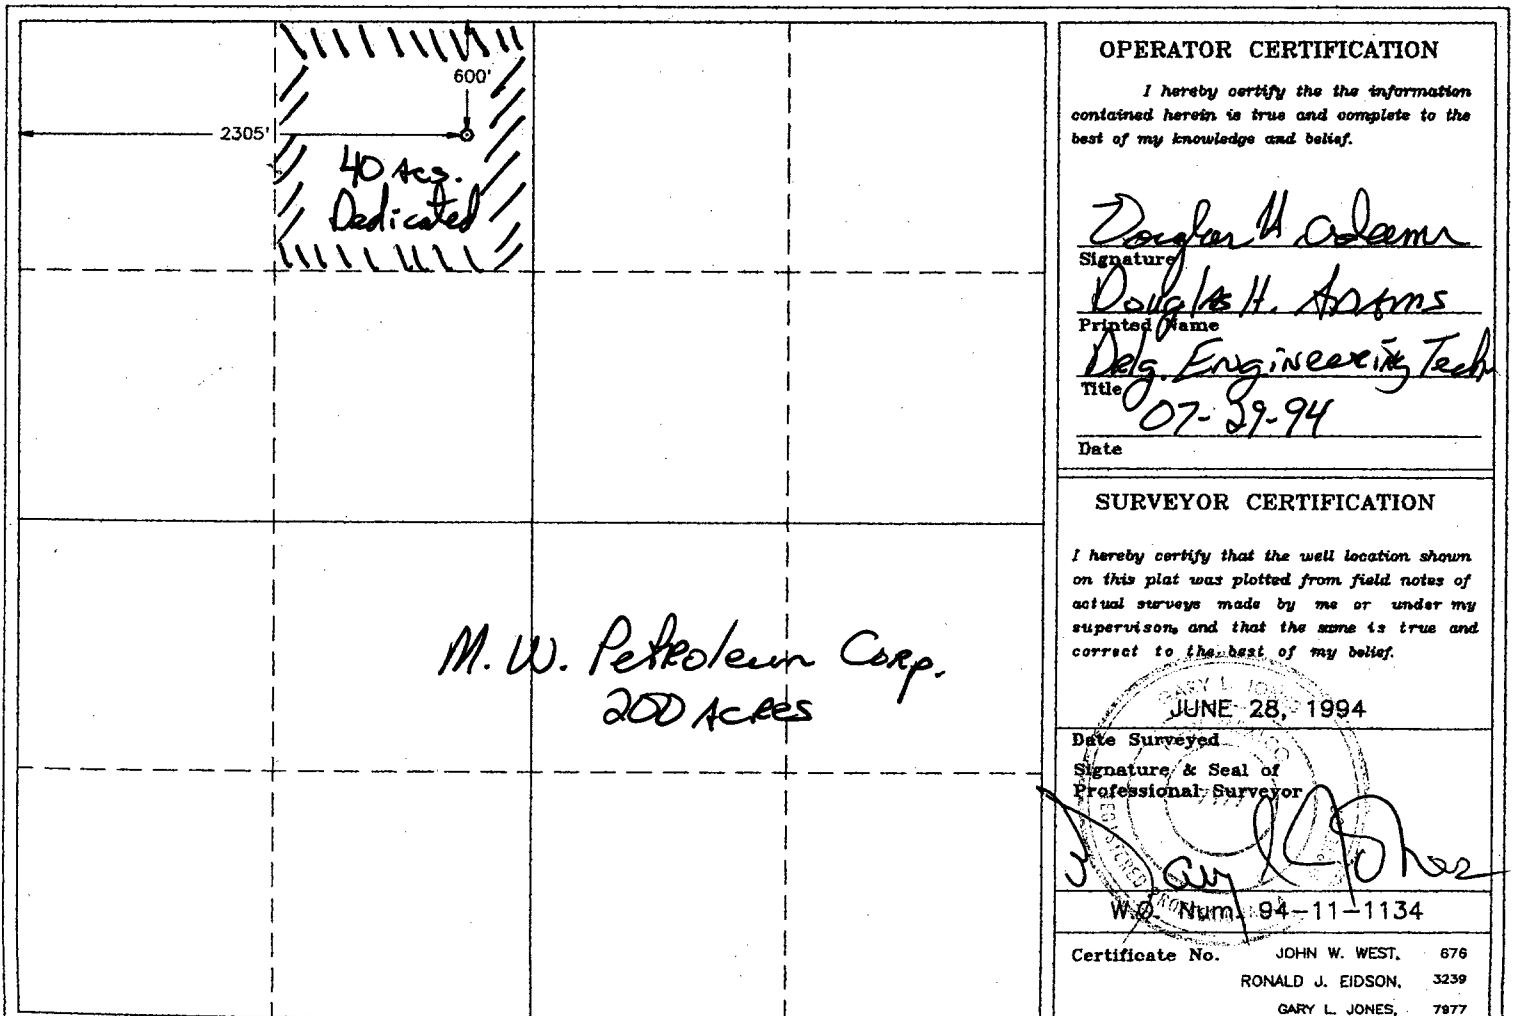 600'
2305'
40 Acs.
Dedicated
M. W. Petroleum Corp.
200 Acres
OPERATOR CERTIFICATION
I hereby certify the the information
contained herein is true and complete to the
best of my knowledge and belief.
Douglas H Adams
Signature
Douglas H. Adams
Printed Name
Drlg. Engineering Tech
Title
07-29-94
Date
SURVEYOR CERTIFICATION
I hereby certify that the well location shown
on this plat was plotted from field notes of
actual surveys made by me or under my
supervison, and that the same is true and
correct to the best of my belief.
GARY L. JONES
JUNE 28, 1994
Date Surveyed
Signature & Seal of
Professional Surveyor
REGISTERED
W.O. Num. 94-11-1134
Certificate No. JOHN W. WEST, 676
RONALD J. EIDSON, 3239
GARY L. JONES, 7977